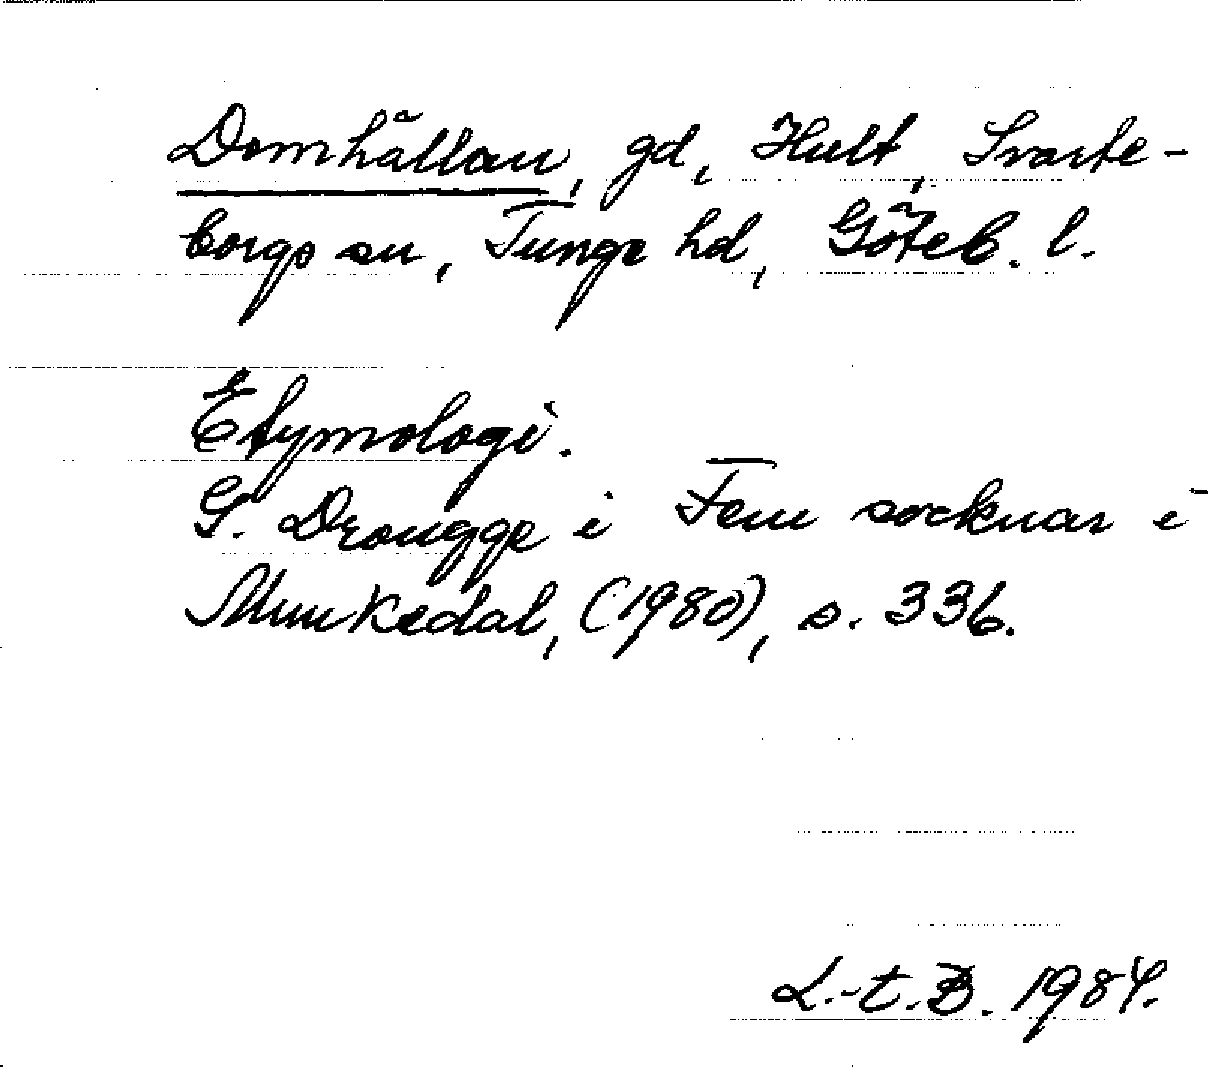 Domhällan, gd, Hult, Svarte-
borgs sn, Tunge hd, Göteb. l.
Etymologi.
S. Drougge i Fem socknar i
Munkedal, (1980), s. 336.
L.-t. B. 1984.